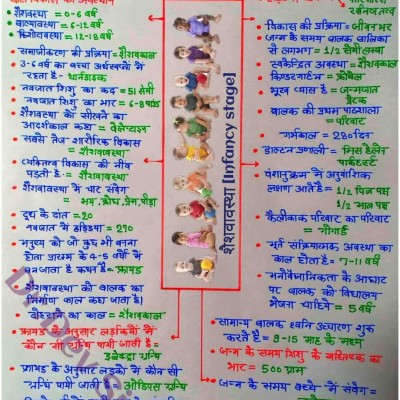 शैशवावस्था = 0-6 वर्ष
बाल्यावस्था = 6-12 वर्ष
किशोरावस्था = 12-18 वर्ष
समाजीकरण की प्रक्रिया = शैशवकाल
3-6 वर्ष का बच्चा अर्धस्वप्नों में
रहता है = थार्नडाइक
नवजात शिशु का कद = 51 सेमी
नवजात शिशु का भार = 6-8 पाउंड
शैशवावस्था को सीखने का
आदर्शकाल कहा = वैलेन्टाइन
सबसे तेज शारीरिक विकास
= शैशवावस्था
व्यक्तित्व विकास की नींव
पड़ती है = शैशवावस्था
शैशवावस्था में चार संवेग =
भय, क्रोध, प्रेम, पीड़ा
दूध के दांत = 20
नवजात में हड्डियां = 270
मनुष्य को जो कुछ भी बनना
होता प्रारम्भ के 4-5 वर्षों में
बनजाता है कथन है = फ्रायड
शैशवावस्था को बालक का
निर्माण काल कहा जाता है
दोहराने का काल = शैशवकाल
फ्रायड के अनुसार लड़कियों में
कौन सी ग्रन्थि पायी जाती है =
इलेक्ट्रा ग्रन्थि
फ्रायड के अनुसार लड़कों में कौन सी
ग्रन्थि पायी जाती है = ओडिपस ग्रन्थि
शैशवावस्था [Infancy stage]
विकास की प्रक्रिया = जीवनभर
जन्म के समय बालक बालिका
से लगभग = 1/2 सेमी लम्बा
स्वकेन्द्रित अवस्था = शैशवकाल
किण्डरगार्टन = फ्रोबेल
भूख प्यास है = जन्मजात
प्रेरक
बालक की प्रथम पाठशाला
= परिवार
गर्भकाल = 280 दिन
डाल्टन प्रणाली = मिस हेलेन
पार्कहर्स्ट
वंशानुक्रम में अनुवांशिक
लक्षण आते है = 1/2 पितृ पक्ष
1/2 मातृ पक्ष
कैलीकाक परिवार का परिवार
= गोडार्ड
मूर्त संक्रियात्मक अवस्था का
काल होता है = 7-11 वर्ष
मनोवैज्ञानिकता के आधार
पर बालक को विद्यालय
भेजना चाहिये = 5 वर्ष
सामान्य बालक ध्वनि उच्चारण शुरु
करते है = 9-15 माह के मध्य
जन्म के समय शिशु के मस्तिष्क का
भार = 500 ग्राम
जन्म के समय बच्चे में संवेग =